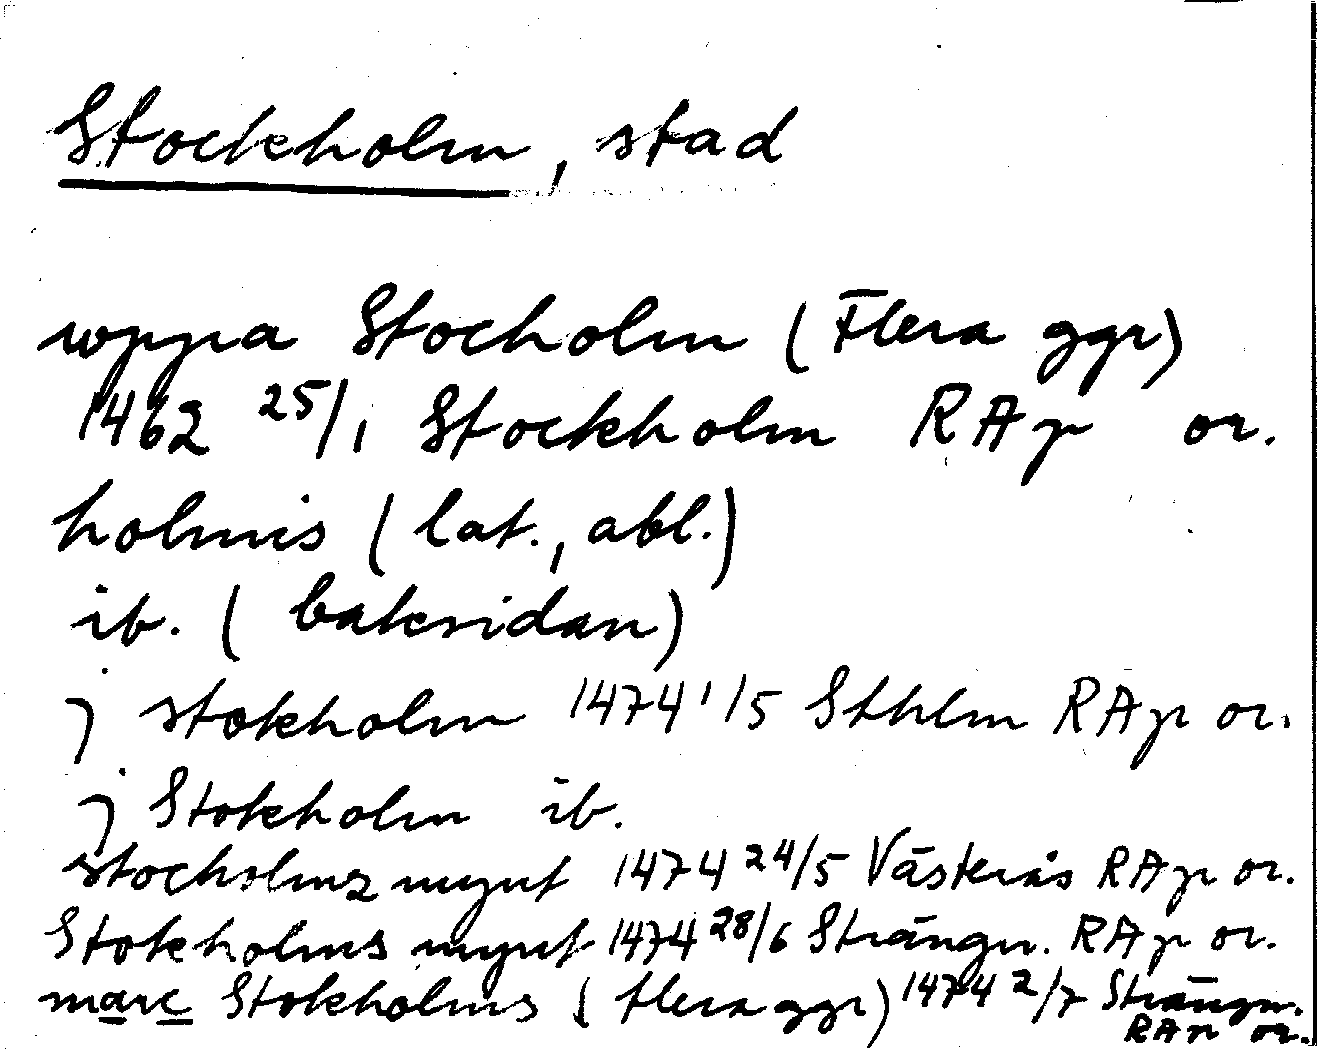 Stockholm, stad
wppa Stocholm (Flera ggr)
1462 25/1 Stockholm RAp or.
holmis (lat., abl.)
ib. (baksidan)
j stokholm 1474 1/5 Sthlm RAp or.
j Stokholm ib.
stocholmz mynt 1474 24/5 Västerås RAp or.
Stokholms mynt 1474 28/6 Strängn. RAp or.
marc Stokholms (flera ggr) 1474 2/7 Strängn.
RAp or.